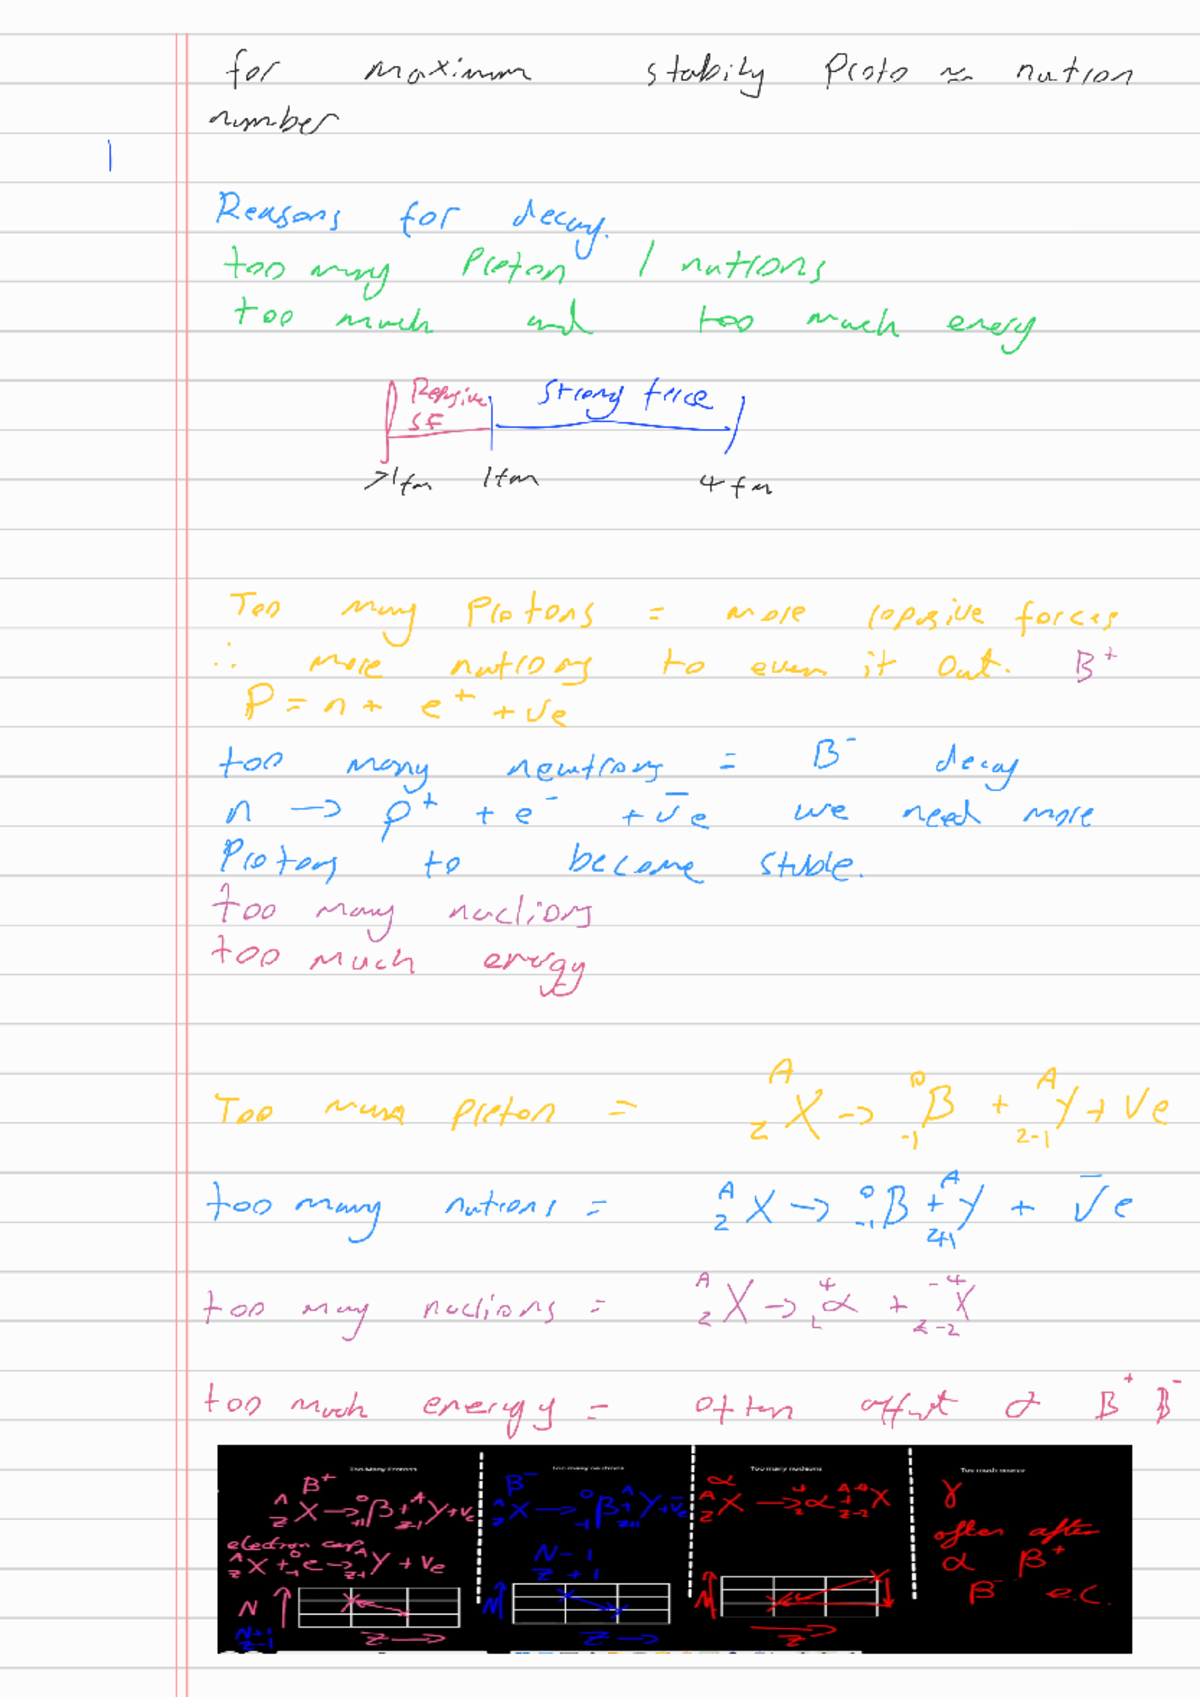 for maximum stabily Proto ≈ nution
number
1
Reasons for decay.
too many Proton / nutrons
too much and too much energy
Repusive Strong force
SF
>1fm 1fm 4fm
Too many Protons = more repusive forces
∴ more nutrons to even it out. B⁺
P = n + e⁺ + νe
too many newtrons = B⁻ decay
n → p⁺ + e⁻ + ν̅e we need more
Protons to become stable.
too many nuclions
too much energy
Too many proton = ᴬ_Z X → ⁰_-1 B + ᴬ_Z-1 Y + Ve
too many nutrons = ᴬ_Z X → ⁰_-1 B + ᴬ_Z+1 Y + V̅e
too many nuclions = ᴬ_Z X → ⁴_2 α + ⁻⁴_Z-2 X
too much energy = often α B⁺ B⁻
Too Many Protons
B⁺
ᴬ_Z X → ⁰_+1 β + ᴬ_Z-1 Y + νe
electron cap
ᴬ_Z X + ⁰_-1 e → ᴬ_Z-1 Y + νe
N
N+1
Z-1
Z →
Too many neutrons
B⁻
ᴬ_Z X → ⁰_-1 β + ᴬ_Z+1 Y + ν̅e
N-1
Z+1
N
Z →
Too many nucleons
α
ᴬ_Z X → ⁴_2 α + ᴬ⁻⁴_Z-2 X
N
Z
Too much energy
γ
often after
α β⁺
β⁻ e.c.